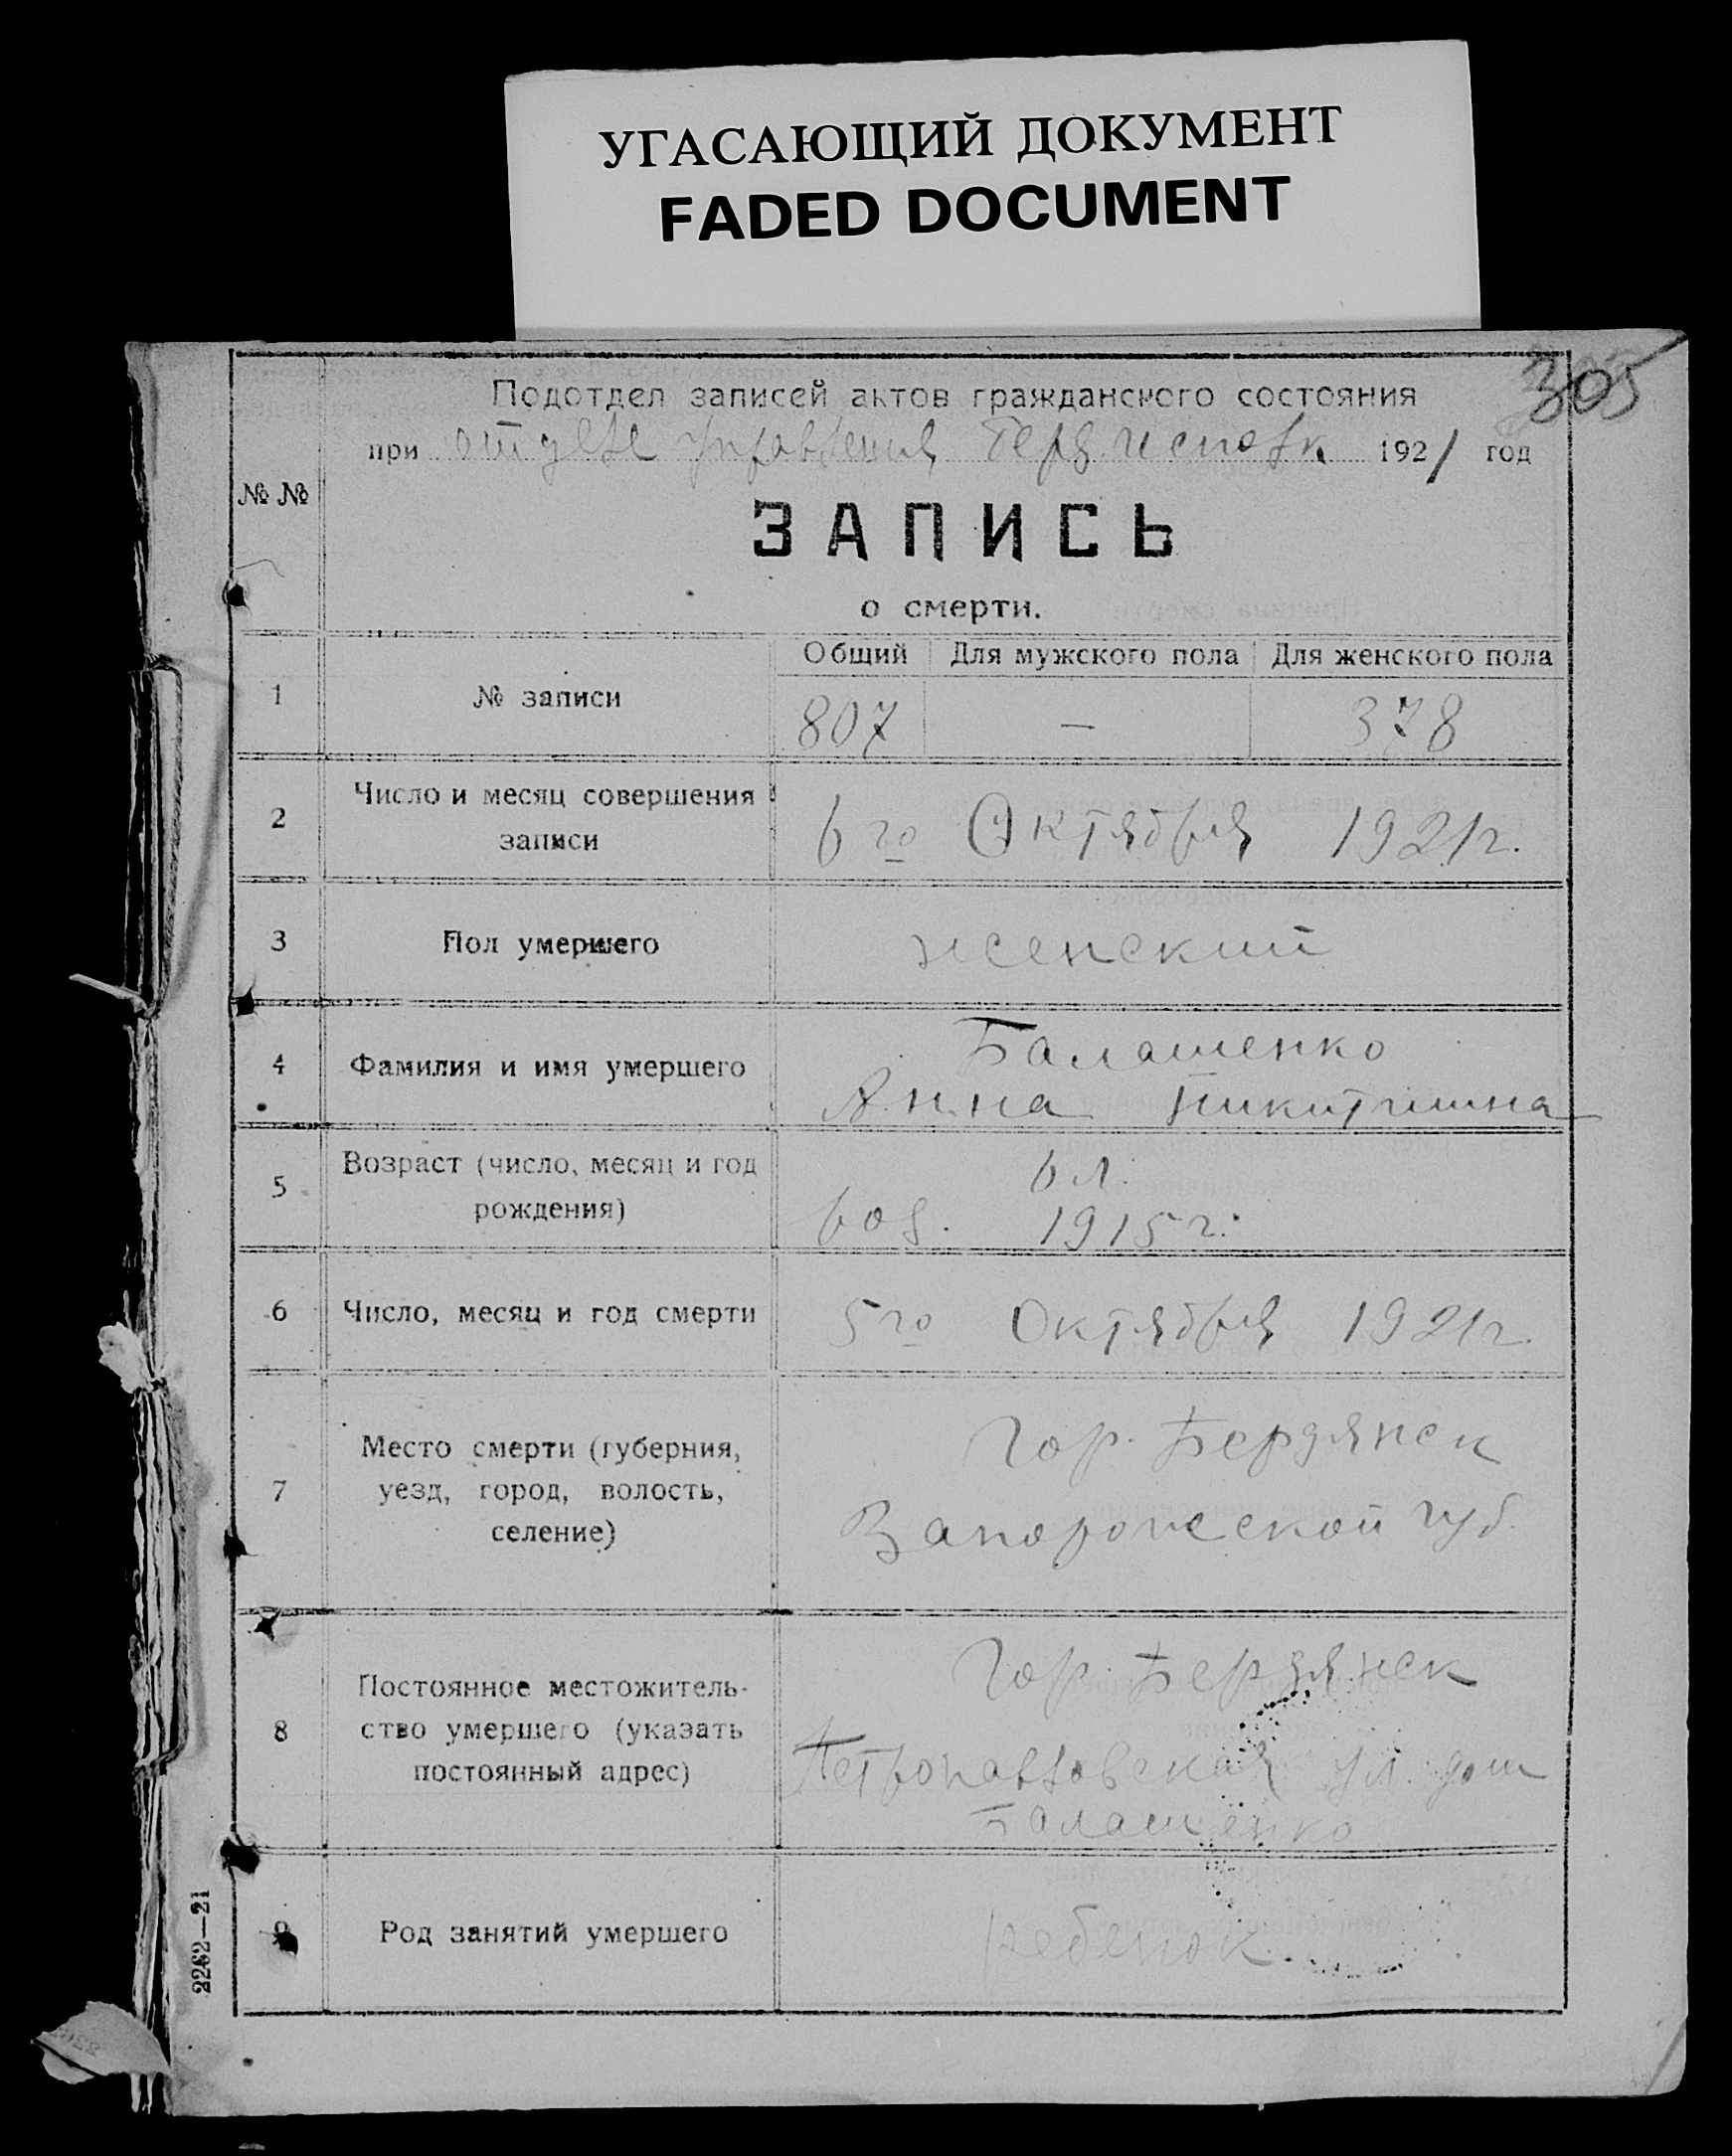 УГАСАЮЩИЙ ДОКУМЕНТ
FADED DOCUMENT
305
Подотдел записей актов гражданского состояния
при отделе управления Берд. исполк. 1921 год
№ №
ЗАПИСЬ
о смерти.
Общий Для мужского пола Для женского пола
1 № записи 807 — 378
2 Число и месяц совершения
записи 6го Октября 1921г.
3 Пол умершего женский
4 Фамилия и имя умершего Балашенко
Анна Никитишна
5 Возраст (число, месяц и год
рождения) 6 л.
1915 г.
6 Число, месяц и год смерти 5го Октября 1921г.
7 Место смерти (губерния,
уезд, город, волость,
селение) Гор. Бердянск
Запорожской губ.
8 Постоянное местожитель-
ство умершего (указать
постоянный адрес) Гор. Бердянск
Петропавловская ул. дом
Балашенко
9 Род занятий умершего ребенок
2262—21